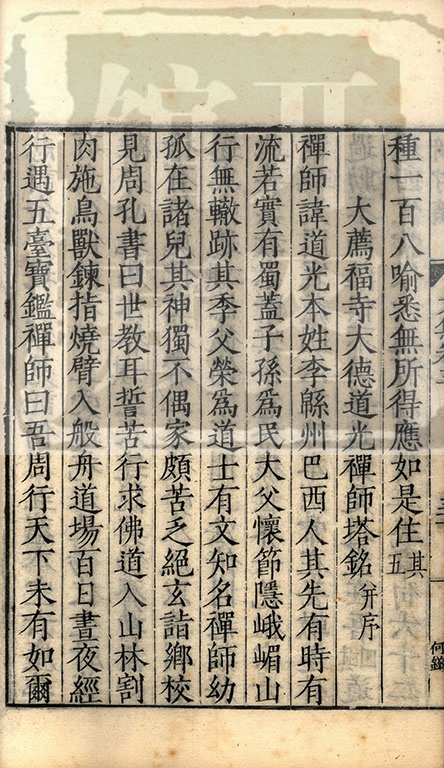 種一百八喻悉無所得應如是住其五
大薦福寺大德道光禪師塔銘并序
禪師諱道光本姓李緜州巴西人其先有時有
流若實有蜀蓋子孫爲民大父懷節隱峨嵋山
行無轍跡其季父榮爲道士有文知名禪師幼
孤在諸兒其神獨不偶家頗苦乏絕玄詣鄉校
見周孔書曰世教耳誓苦行求佛道入山林割
肉施鳥獸鍊指燒臂入般舟道場百日晝夜經
行遇五臺寶鑑禪師曰吾周行天下未有如爾